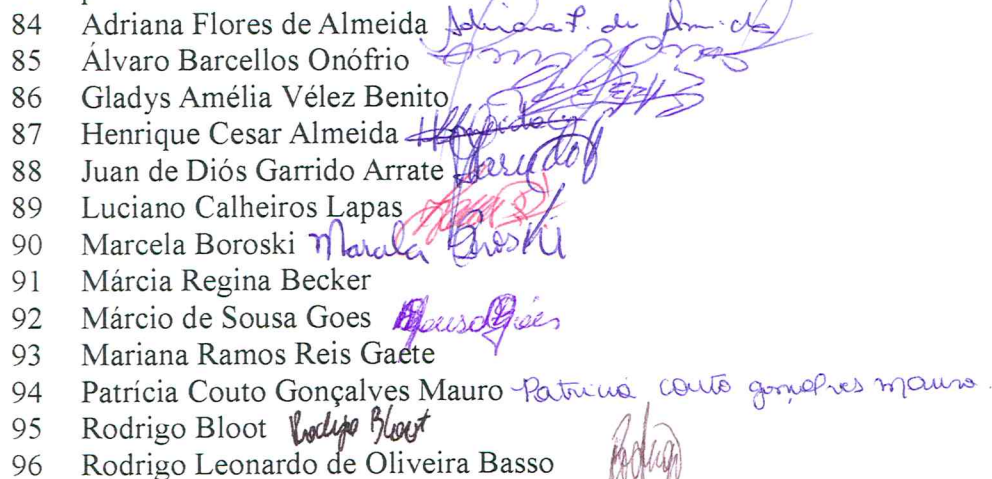 84 Adriana Flores de Almeida Adriana F. de Almeida
85 Álvaro Barcellos Onófrio
86 Gladys Amélia Vélez Benito
87 Henrique Cesar Almeida
88 Juan de Diós Garrido Arrate Garrido
89 Luciano Calheiros Lapas
90 Marcela Boroski Marcela Boroski
91 Márcia Regina Becker
92 Márcio de Sousa Goes Sousa Góes
93 Mariana Ramos Reis Gaete
94 Patrícia Couto Gonçalves Mauro Patricia couto gonçalves mauro.
95 Rodrigo Bloot Rodrigo Bloot
96 Rodrigo Leonardo de Oliveira Basso Rodrigo